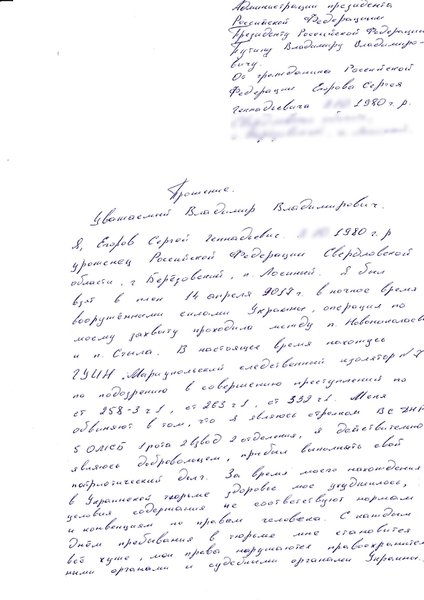 Администрации президента
Российской Федерациии
Президенту Российской Федерации
Путину Владимиру Владимиро-
вичу.
От гражданина Российской
Федерации Егорова Сергея
Геннадьевича 1980 г.р.
Прошение.
Уважаемый Владимир Владимирович.
Я, Егоров Сергей Геннадьевич. 1980 г.р
уроженец Российской Федерации Свердловской
области, г. Берёзовский, п. Лосиный. Я был
взят в плен 14 апреля 2017 г. в ночное время
вооружёнными силами Украины, операция по
моему захвату проходила между п. Новониколаевка
и п. Стыла. В настоящее время нахожусь
ГУИН. Мариупольский следственный изолятор №7
по подозрению в совершению преступлений по
ст 258-3 ч1, ст 263 ч1, ст 332 ч1. Меня
обвиняют в том, что я являюсь стрелком ВС ДНР
5 ОМСБ 1 рота 2 взвод 2 отделения, я действительно
являюсь добровольцем, прибыл выполнять свой
патриотический долг. За время моего нахождения
в Украинской тюрьме здоровье мое ухудшилось,
условия содержания не соответствуют нормам
и конвенциям по правам человека. С каждым
днём пребывания в тюрьме мне становится
всё хуже, мои права нарушаются правоохраните
ными органами и судебными органами Украины.